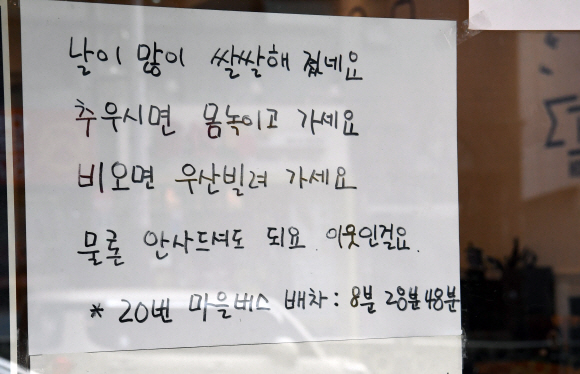 날이 많이 쌀쌀해 졌네요
추우시면 몸녹이고 가세요
비오면 우산빌려 가세요
물론 안사드셔도 되요 이웃인걸요.
* 20번 마을버스 배차 : 8분 28분 48분